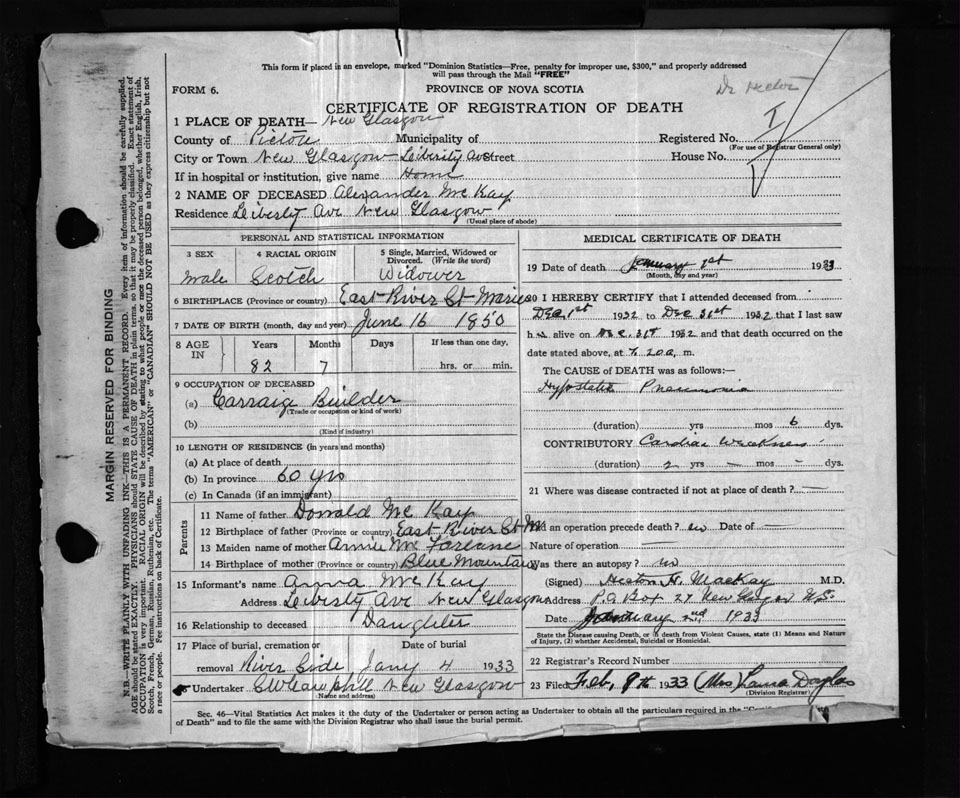 This form if placed in an envelope, marked "Dominion Statistics—Free, penalty for improper use, $300," and properly addressed
will pass through the Mail "FREE"
FORM 6.
PROVINCE OF NOVA SCOTIA
Dr Hector
CERTIFICATE OF REGISTRATION OF DEATH
1 PLACE OF DEATH— New Glasgow
County of Pictou Municipality of
Registered No. I
(For use of Registrar General only)
City or Town New Glasgow Leiberity Ave Street
House No.
If in hospital or institution, give name Home
2 NAME OF DECEASED Alexander McKay
Residence Leiberty Ave New Glasgow
(Usual place of abode)
PERSONAL AND STATISTICAL INFORMATION
3 SEX
male
4 RACIAL ORIGIN
Scotch
5 Single, Married, Widowed or
Divorced. (Write the word)
Widower
6 BIRTHPLACE (Province or country) East River St Maries
7 DATE OF BIRTH (month, day and year) June 16 1850
8 AGE
IN
Years Months Days If less than one day,
82 7 hrs. or min.
9 OCCUPATION OF DECEASED
(a) Carraige Builder
(Trade or occupation or kind of work)
(b)
(Kind of industry)
10 LENGTH OF RESIDENCE (in years and months)
(a) At place of death
(b) In province 60 yrs
(c) In Canada (if an immigrant)
Parents
11 Name of father Donald McKay
12 Birthplace of father (Province or country) East River St M
13 Maiden name of mother Annie McFarlane
14 Birthplace of mother (Province or country) Blue Mountain
15 Informant's name Anna McKay
Address Leiberty Ave New Glasgow
16 Relationship to deceased Daughter
17 Place of burial, cremation or Date of burial
removal River Side Jany 4 1933
Undertaker New Glasgow
(Name and address)
MEDICAL CERTIFICATE OF DEATH
19 Date of death January 1st 1933
(Month, day and year)
20 I HEREBY CERTIFY that I attended deceased from
Dec 1st 1932 to Dec 31st 1932 that I last saw
h alive on Dec. 31st 1932 and that death occurred on
date stated above, at 7.20 a. m.
The CAUSE of DEATH was as follows:—
Hypostatic Pneumonia
(duration) yrs mos 6 dys.
CONTRIBUTORY Cardiac Weakness
(duration) 2 yrs — mos — dys.
21 Where was disease contracted if not at place of death? —
an operation precede death? no Date of —
Nature of operation —
Was there an autopsy? no
(Signed) Hector H. MacKay M.D.
Address P.O. Box 27 New Glasgow N.S.
Date January 2nd 1933
State the Disease causing Death, or in death from Violent Causes, state (1) Means and Nature
of Injury, (2) whether Accidental, Suicidal or Homicidal.
22 Registrar's Record Number
23 Filed Feb. 9th 1933 (Mrs)
(Division Registrar)
Sec. 46—Vital Statistics Act makes it the duty of the Undertaker or person acting as Undertaker to obtain all the particulars required in the
of Death" and to file the same with the Division Registrar who shall issue the burial permit.
MARGIN RESERVED FOR BINDING
N.B.—WRITE PLAINLY WITH UNFADING INK—THIS IS A PERMANENT RECORD. Every item of information should be carefully supplied.
AGE should be stated EXACTLY. PHYSICIANS should STATE CAUSE OF DEATH in plain terms, so that it may be properly classified. Exact statement of
OCCUPATION is very important. RACIAL ORIGIN will be described by stating to what people or race the deceased person belonged, whether English, Irish,
Scotch, French, German, Russian, Ruthenian, etc. The terms "AMERICAN" or "CANADIAN" SHOULD NOT BE USED as they express citizenship but not
a race or people. See instructions on back of Certificate.